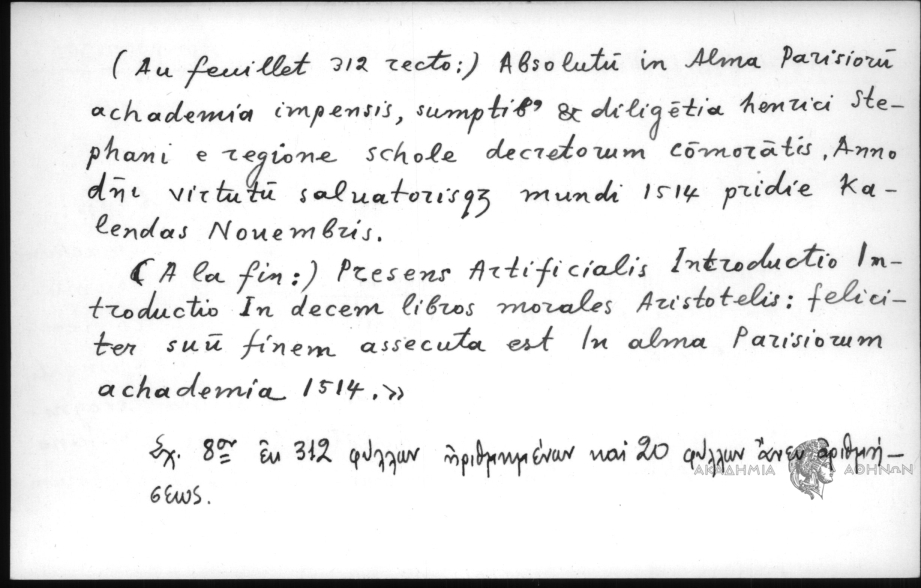 (Au feuillet 312 recto:) Absolutū in Alma Parisiorū
achademia impensis, sumptibꝰ & diligētia henrici Ste-
phani e regione schole decretorum cōmorātis, Anno
dn̄i virtutū saluatorisqꝫ mundi 1514 pridie Ka-
lendas Nouembris.
(A la fin:) Presens Artificialis Introductio In-
troductio In decem libros morales Aristotelis: felici-
ter suū finem assecuta est In alma Parisiorum
achademia 1514.»
Σχ. 8ον ἐκ 312 φύλλων ἠριθμημένων καὶ 20 φύλλων ἄνευ ἀριθμή-
σεως.
ΑΚΑΔΗΜΙΑ ΑΘΗΝΩΝ